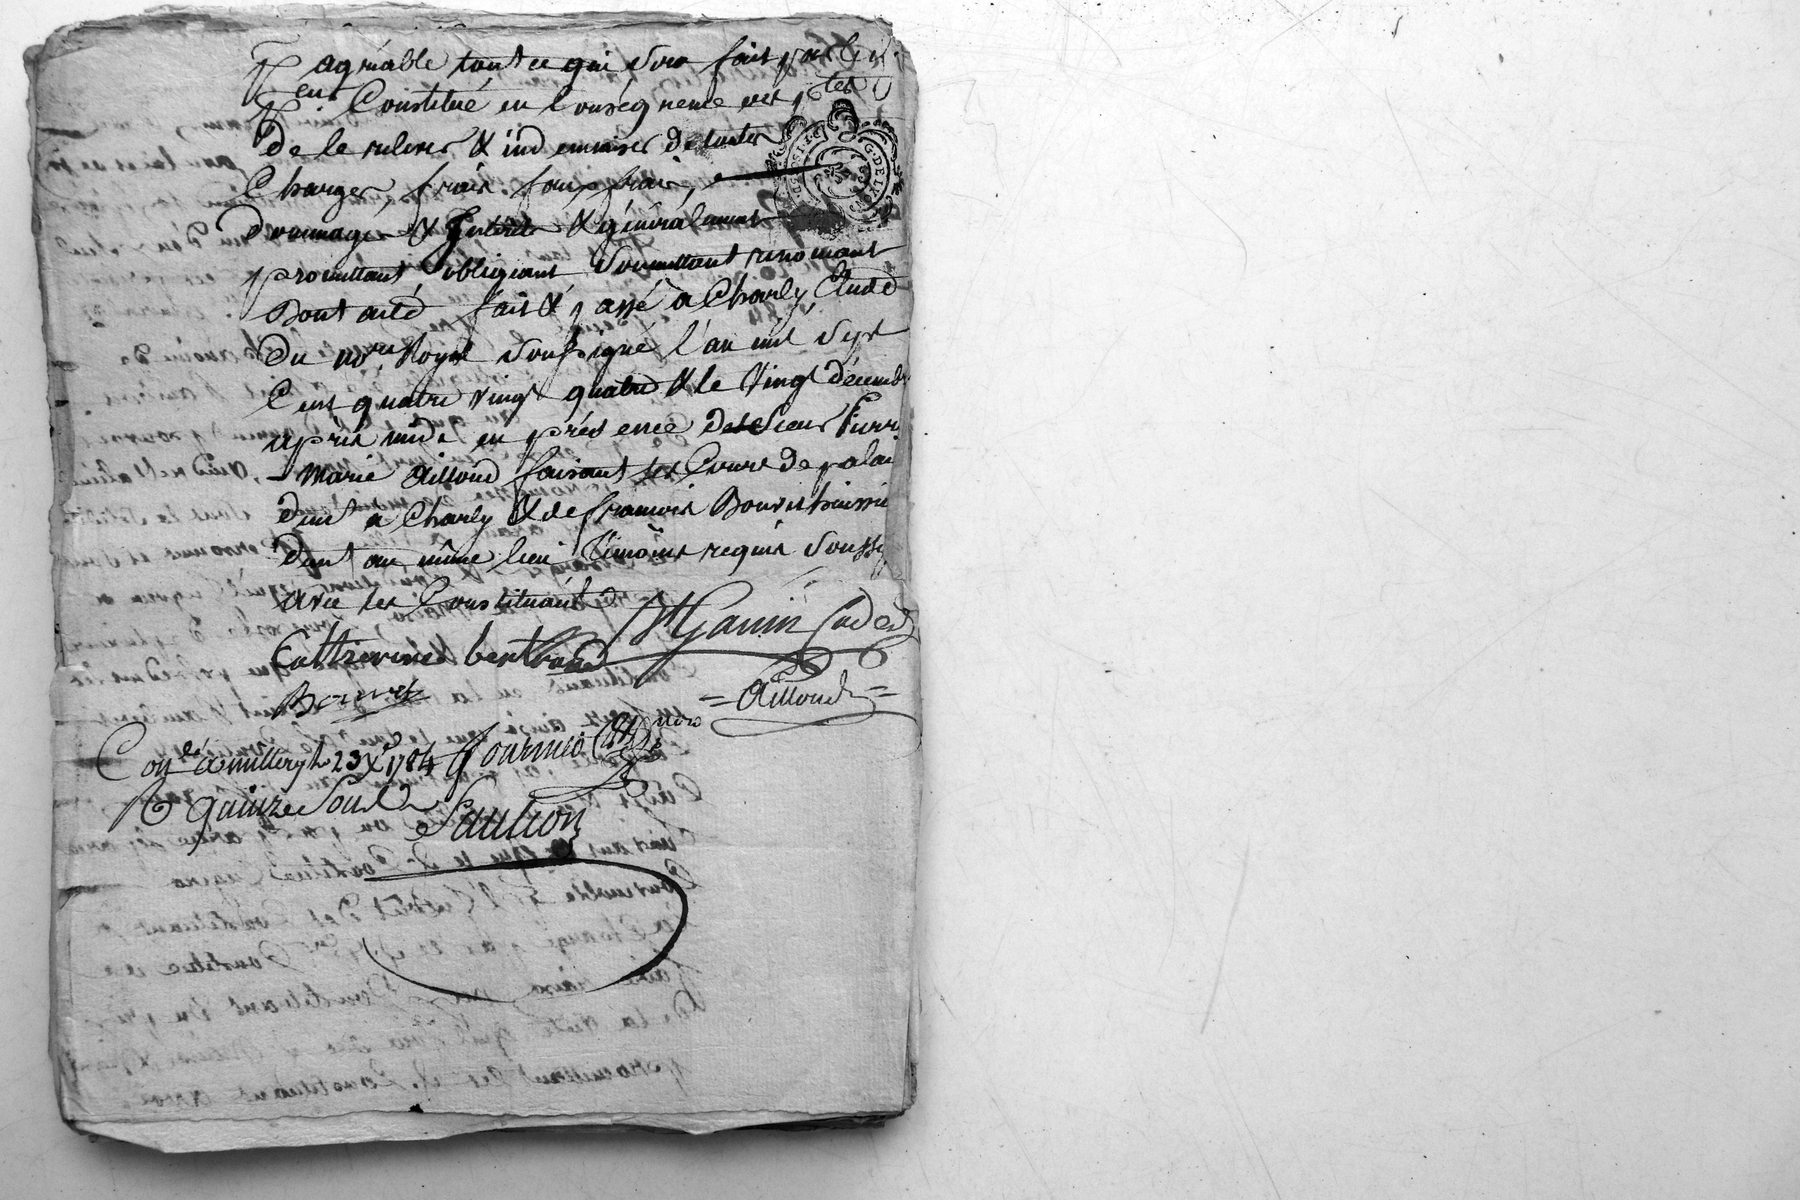 agréable tout ce qui sera fait par le
Constitué en Conséquence
de le relever & indemniser de toutes
Charges, frais, faux frais,
dommages & Intérêts & généralement
promettant obligeant soumettant renonçant
Dont acte fait & passé à Charly Etude
du no.re Royal soussigné l'an mil sept
Cent quatre vingt quatre & le Vingt décemb
après midi en présence de Sieur Pierre
-Marie Ailloud faisant les Cours de palai
dant a Charly & de françois
dant au même lieu Témoins requis Soussig
avec les Constituants
Catherine bertrand
= Aillond =
Con.lé a millery le 23 X 1784 nore
R quinze Sous
Saulnon